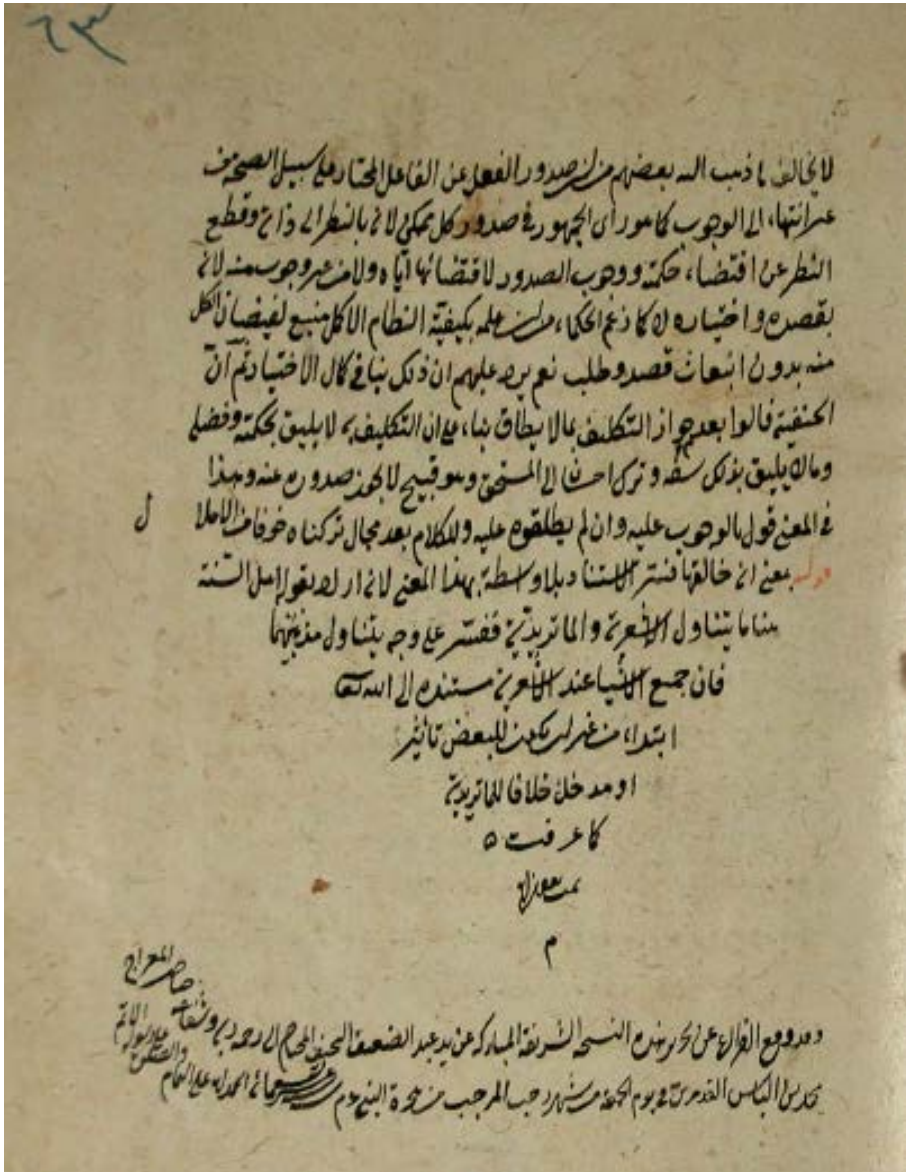 ٦٣
لا يخالف ما ذهب اليه بعضهم من ان صدور الفعل عن الفاعل المختار على سبيل الصحة من
غير انتهاء الى الوجوب كما هو رأى الجمهور في صدور كل ممكن لانه بالنظر الى ذاته وقطع
النظر عن اقتضاء حكمته ووجوب الصدور لاقتضائها اياه ولا من غير وجوب منه لانه
بقصده واختياره لا كما زعم الحكماء من ان علمه بكيفية النظام الاكمل منبع لفيضان الكل
منه بدون انبعاث قصد وطلب نعم يرد عليهم ان ذلك ينافي كمال الاختيار ثم ان
الحنفية قالوا بعدم جواز التكليف بما لا يطاق بناء على ان التكليف به لا يليق بحكمته وفضله
وما لا يليق بذلك سفه وترك احسان الى المستحق وهو قبيح لا يجوز صدوره عنه وهذا
في المعنى قول بالوجوب عليه وان لم يطلقوه عليه وللكلام بعد مجال تركناه خوفا من الاملال
قوله بمعنى انه خالقها فسر الاستناد بلا واسطة بهذا المعنى لانه اراد بقوله اهل السنة
هنا ما يتناول الاشعرية والماتريدية ففسر على وجه يتناول مذهبهما
فان جميع الاشياء عند الاشعرية مستنده الى الله تعالى
ابتداء من غير ان يكون للبعض تأثير
او مدخل خلافا للماتريدية
كما عرفت ٥
تمت بعون الله
م
وقد وقع الفراغ عن تحرير هذه النسخة الشريفة المباركة عن يد عبد الضعيف النحيف المحتاج الى رحمة ربه وشفاعة صاحب المعراج
الياس في يوم الجمعة من شهر رجب المرجب من هجرة النبي عم الحمد لله على التمام والصلوة على رسوله